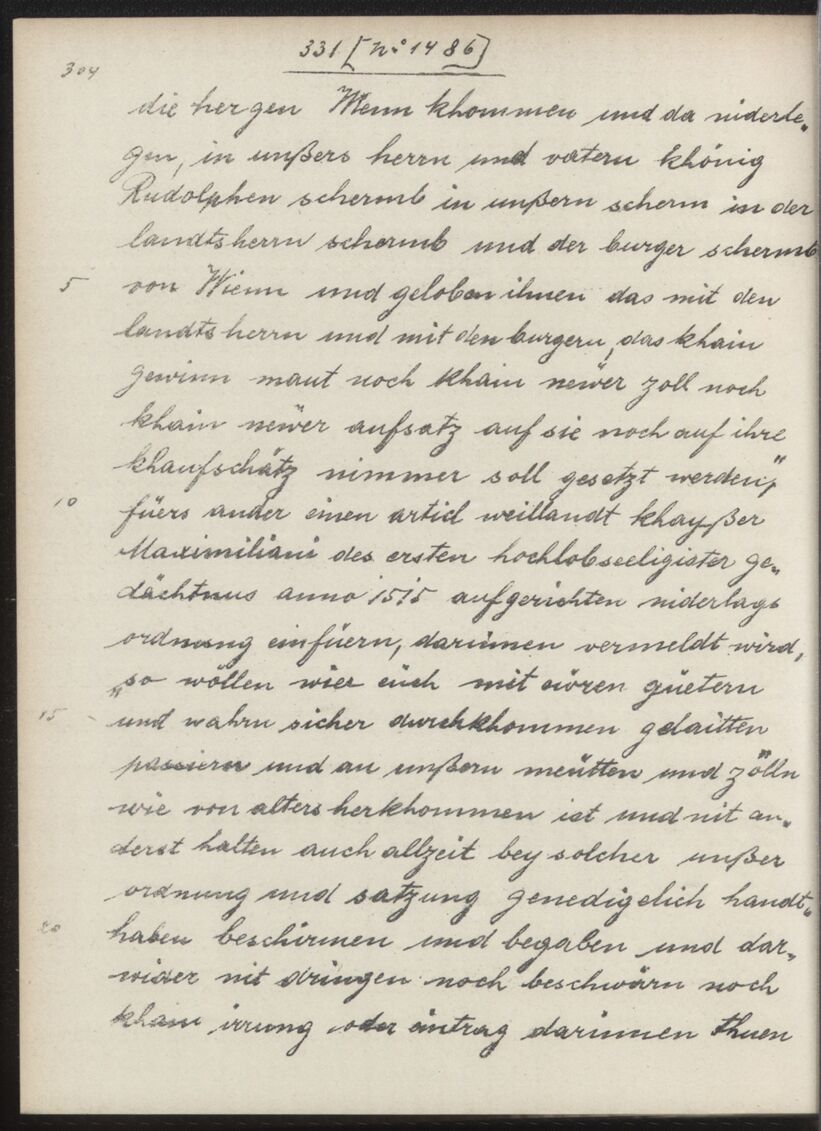 331 [No 1486]
304
die hergen Wienn khommen und da niderle„
gen, in unßers herrn und vatern khönig
Rudolphen schermb in unßern scherm in der
landtsherrn schermb und der burger schermb
5 von Wienn und geloben ihnen das mit den
landtsherrn und mit den burgern, das khain
gewinn maut noch khain newer zoll noch
khain newer aufsatz auf sie noch auf ihre
khaufschätz nimmer soll gesetzt werden",
10 füers ander einen articl weillandt khayßer
Maximiliani des ersten hochlobseeligister ge„
dächtnus anno 1515 aufgerichten niderlags
ordnung einfüern, darinnen vermeldt wird,
„so wöllen wier eüch mit eüren güetern
15 und wahrn sicher durchkhommen gelaitten
passiern und an unßern meütten und zölln
wie von alters herkhommen ist und nit an„
derst halten auch allzeit bey solcher unßer
ordnung und satzung genedigelich handt„
20 haben beschirmen und begaben und dar„
wider nit dringen noch beschwärn noch
khain irrung oder eintrag darinnen thuen